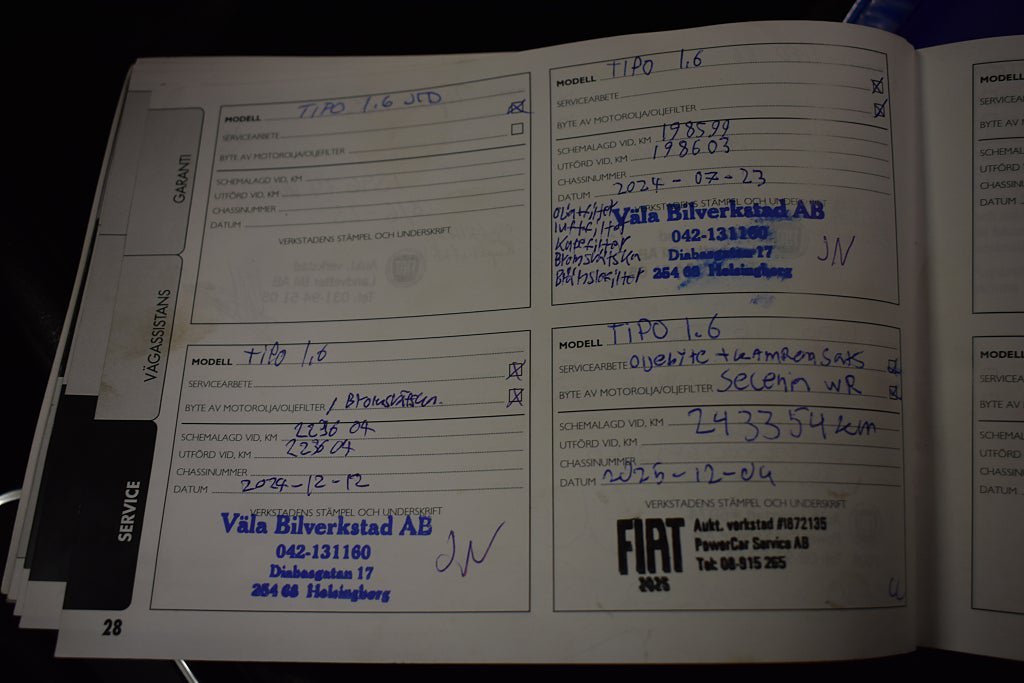 GARANTI
VÄGASSISTANS
SERVICE
28
MODELL TIPO 1.6 JTD
SERVICEARBETE
BYTE AV MOTOROLJA/OLJEFILTER
SCHEMALAGD VID, KM
UTFÖRD VID, KM
CHASSINUMMER
DATUM
VERKSTADENS STÄMPEL OCH UNDERSKRIFT
MODELL TIPO 1.6
SERVICEARBETE
BYTE AV MOTOROLJA/OLJEFILTER
SCHEMALAGD VID, KM 198599
UTFÖRD VID, KM 198603
CHASSINUMMER
DATUM 2024-07-23
VERKSTADENS STÄMPEL OCH UNDERSKRIFT
Väla Bilverkstad AB
042-131160
Diabasgatan 17
254 68 Helsingborg
JN
MODELL TIPO 1.6
SERVICEARBETE
BYTE AV MOTOROLJA/OLJEFILTER
SCHEMALAGD VID, KM 223604
UTFÖRD VID, KM 223604
CHASSINUMMER
DATUM 2024-12-12
VERKSTADENS STÄMPEL OCH UNDERSKRIFT
Väla Bilverkstad AB
042-131160
Diabasgatan 17
254 68 Helsingborg
JN
MODELL TIPO 1.6
SERVICEARBETE Oljebyte + kamremsats
BYTE AV MOTOROLJA/OLJEFILTER Selenia WR
SCHEMALAGD VID, KM 243354 km
UTFÖRD VID, KM
CHASSINUMMER
DATUM 2025-12-04
VERKSTADENS STÄMPEL OCH UNDERSKRIFT
FIAT
2025
Aukt. verkstad #1872135
PowerCar Service AB
Tel: 08-915 265
MODELL
SERVICEARB
BYTE AV M
SCHEMAL
UTFÖRD
CHASSIN
DATUM
MODELL
SERVICEA
BYTE AV
SCHEMAL
UTFÖRD
CHASSIN
DATUM